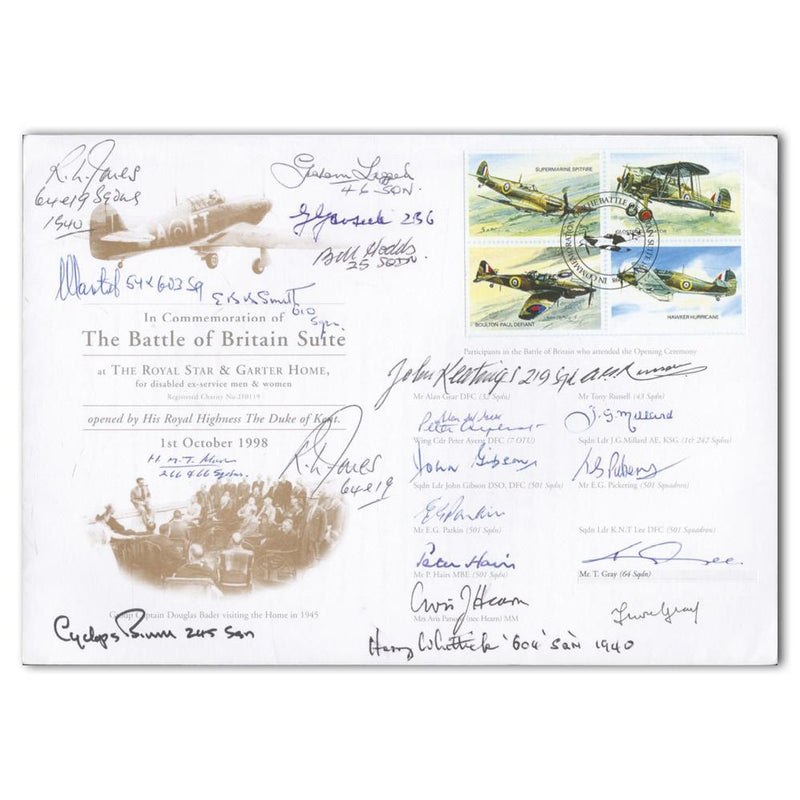 R. L. Jones
64 & 19 Sqdns
1940
46 SQN.
236
Bill Hodds
25 SQDN.
54 & 603 Sq
Smith
610
Sqn.
SUPERMARINE SPITFIRE
BOULTON PAUL DEFIANT
HAWKER HURRICANE
IN COMMEMORATION
In Commemoration of
The Battle of Britain Suite
at THE ROYAL STAR & GARTER HOME,
for disabled ex-service men & women
Registered Charity No.210119
opened by His Royal Highness The Duke of Kent.
1st October 1998
266 & 66 Sqdns.
R. L. Jones
64 & 19
Group Captain Douglas Bader visiting the Home in 1945
Cyclops Brown 245 Sqn
Participants in the Battle of Britain who attended the Opening Ceremony
John Keatings 219 Sqd
Mr Alan Gear DFC (32 Sqdn)
Mr Tony Russell (43 Sqdn)
Alan Gear
Peter Ayerst
J. G. Millard
Wing Cdr Peter Ayerst DFC (7 OTU)
Sqdn Ldr J.G.Millard AE, KSG (1& 242 Sqdns)
John Gibson
Sqdn Ldr John Gibson DSO, DFC (501 Sqdn)
Mr E.G. Pickering (501 Squadron)
E G Parkin
Mr E.G. Parkin (501 Sqdn)
Sqdn Ldr K.N.T Lee DFC (501 Squadron)
Peter Hairs
Mr P. Hairs MBE (501 Sqdn)
Mr. T. Gray (64 Sqdn)
J Hearn
Mrs Aris Patson (nee Hearn) MM
Trevor Gray
Harry Whittick '604' SQN 1940